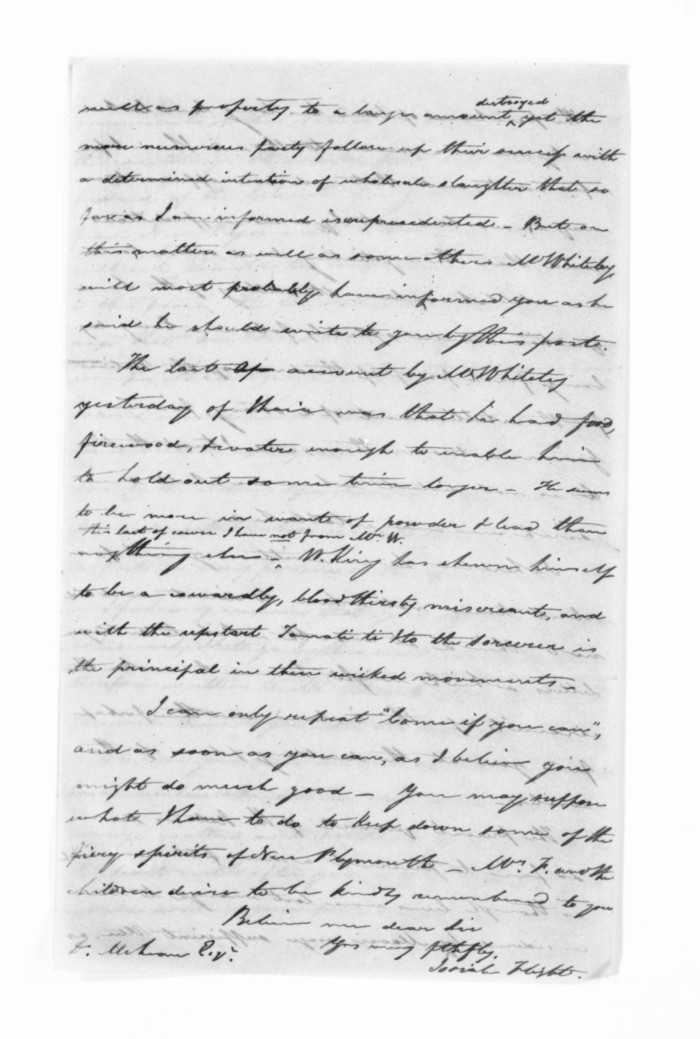 well as property to a large amount destroyed yet the
more numerous party follow up their success with
a determined intention of wholesale slaughter that so
far as I am informed is unprecedented - But on
this matter as well as some others Mr Whiteley
will most probably have informed you as he
said he should write to you by this post.
The last account by Mr Whiteley
yesterday of Ihaia was that he had food,
firewood, & water enough to enable him
to hold out some time longer - He seems
to be more in want of powder & lead than
this last of course I have not from Mr. W.
anything else - W. King has shewn himself
to be a cowardly, bloodthirsty miscreant, and
with the upstart Tamati te Ito the sorcerer is
the principal in these wicked movements -
I can only repeat "Come if you can",
and as soon as you can, as I believe you
might do much good - You may suppose
what I have to do to keep down some of the
fiery spirits of New Plymouth - Mrs. F. and the
children desire to be kindly remembered to you
Believe me dear Sir
Yrs very fthfly.
Josiah Flight.
D. McLean Esqr.